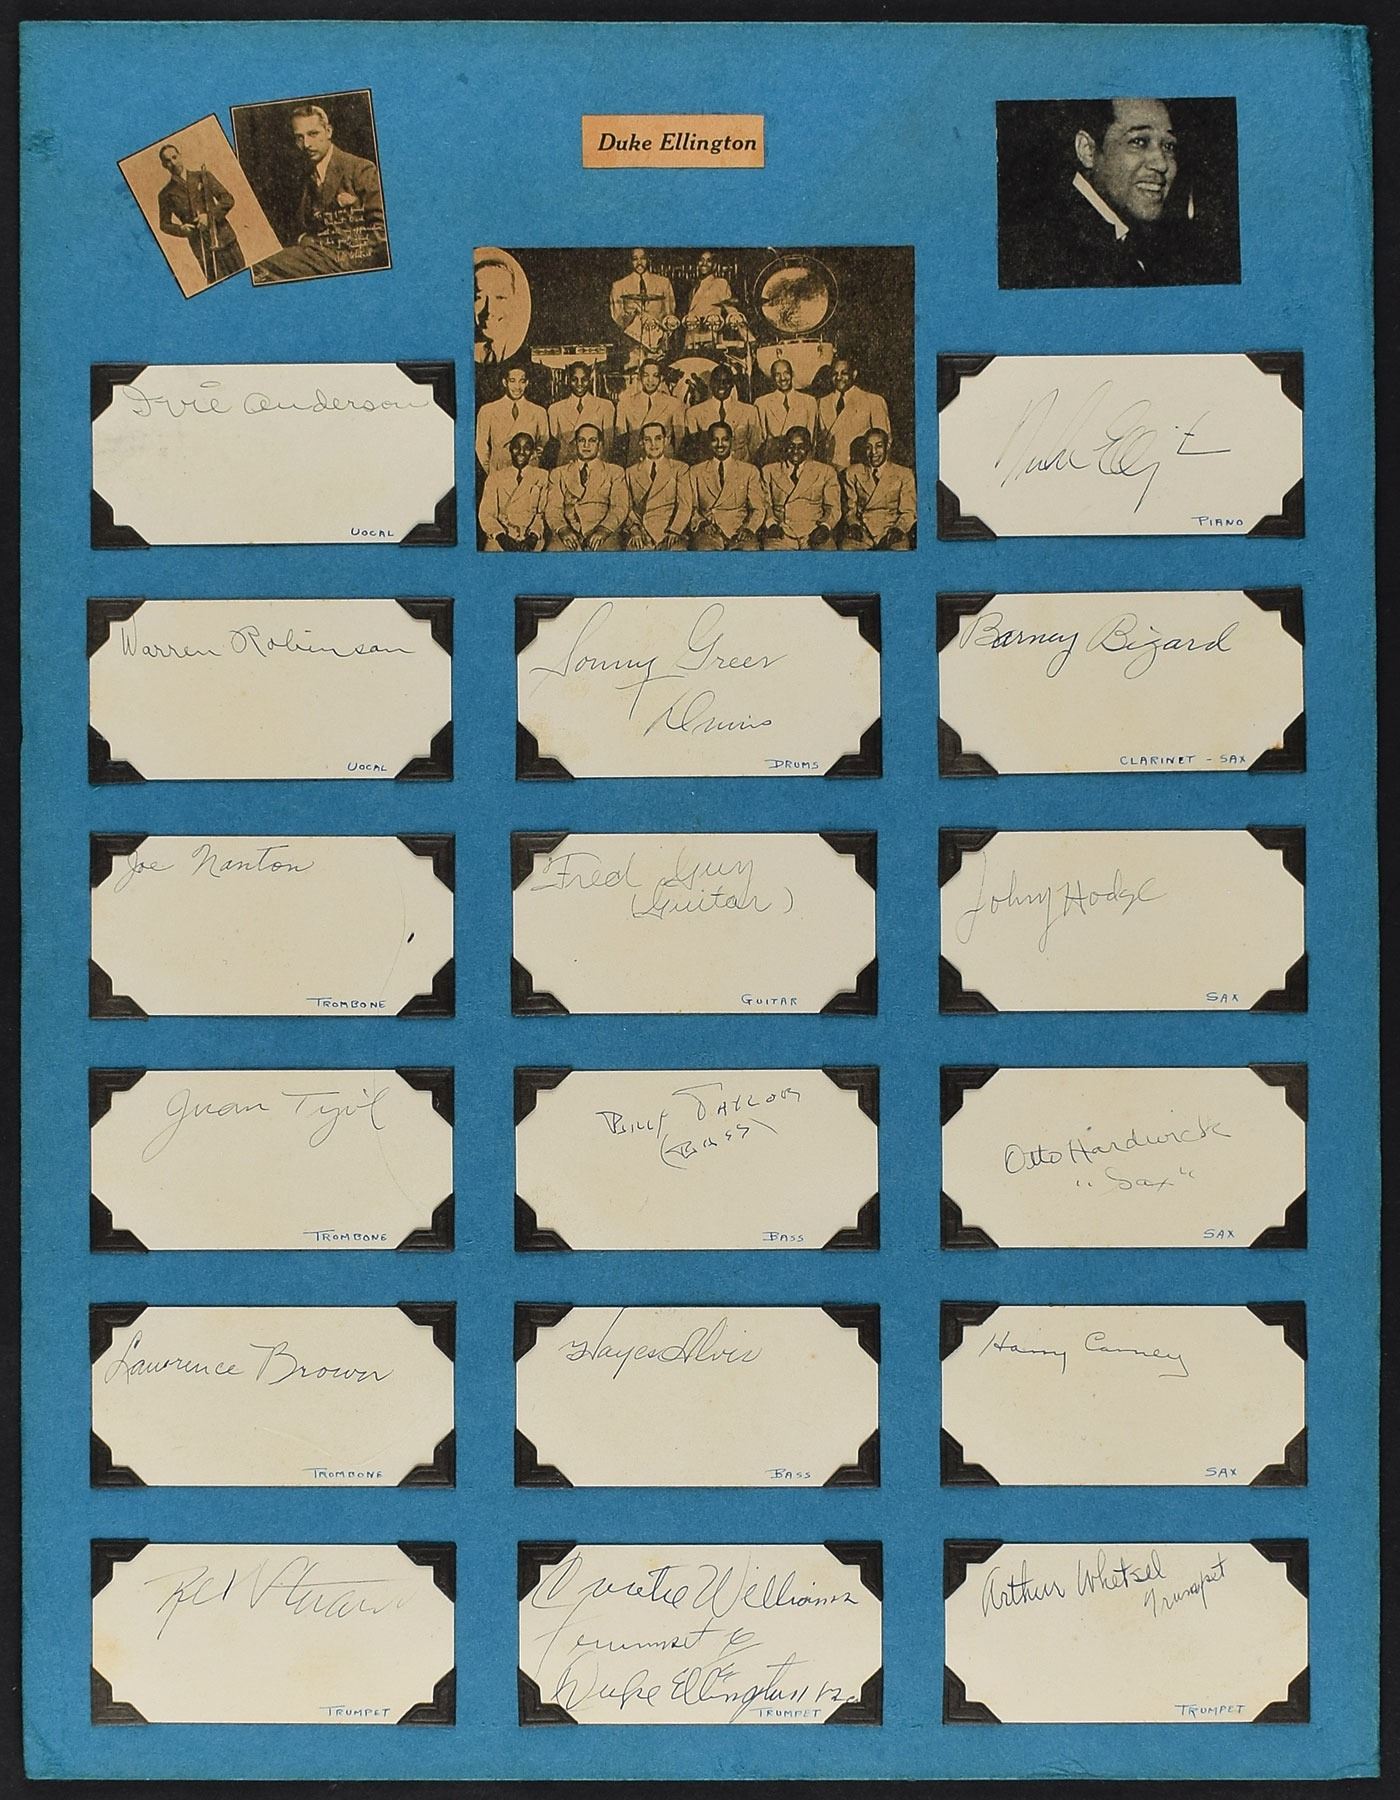 Duke Ellington
Ivie Anderson
VOCAL
Duke Ellington
PIANO
Warren Robinson
VOCAL
Sonny Greer
Drums
DRUMS
Barney Bigard
CLARINET - SAX
Joe Nanton
TROMBONE
Fred Guy
(Guitar)
GUITAR
Johny Hodge
SAX
Juan Tizol
TROMBONE
BILLY TAYLOR
(BASS)
BASS
Otto Hardwick
"Sax"
SAX
Lawrence Brown
TROMBONE
Hayes Alvis
BASS
Harry Carney
SAX
Rex Stewart
TRUMPET
Cootie Williams
Trumpet
Duke Ellington
TRUMPET
Arthur Whetsel
Trumpet
TRUMPET